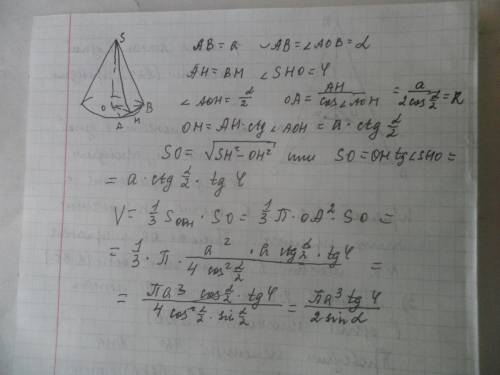 S
O
A
H
B
AB = a ∪AB = ∠AOB = α
AH = BH ∠SHO = φ
∠AOH = α/2 OA = AH/cos∠AOH = a/(2cos α/2) = R
OH = AH · ctg∠AOH = a · ctg α/2
SO = √(SH² − OH²) или SO = OH tg∠SHO =
= a · ctg α/2 · tg φ
V = 1/3 Sосн · SO = 1/3 π · OA² · SO =
= 1/3 · π · a²/(4 cos² α/2) · a ctg α/2 · tg φ =
= (πa³ cos α/2 · tg φ)/(4 cos² α/2 · sin α/2) = (πa³ tg φ)/(2 sin α)